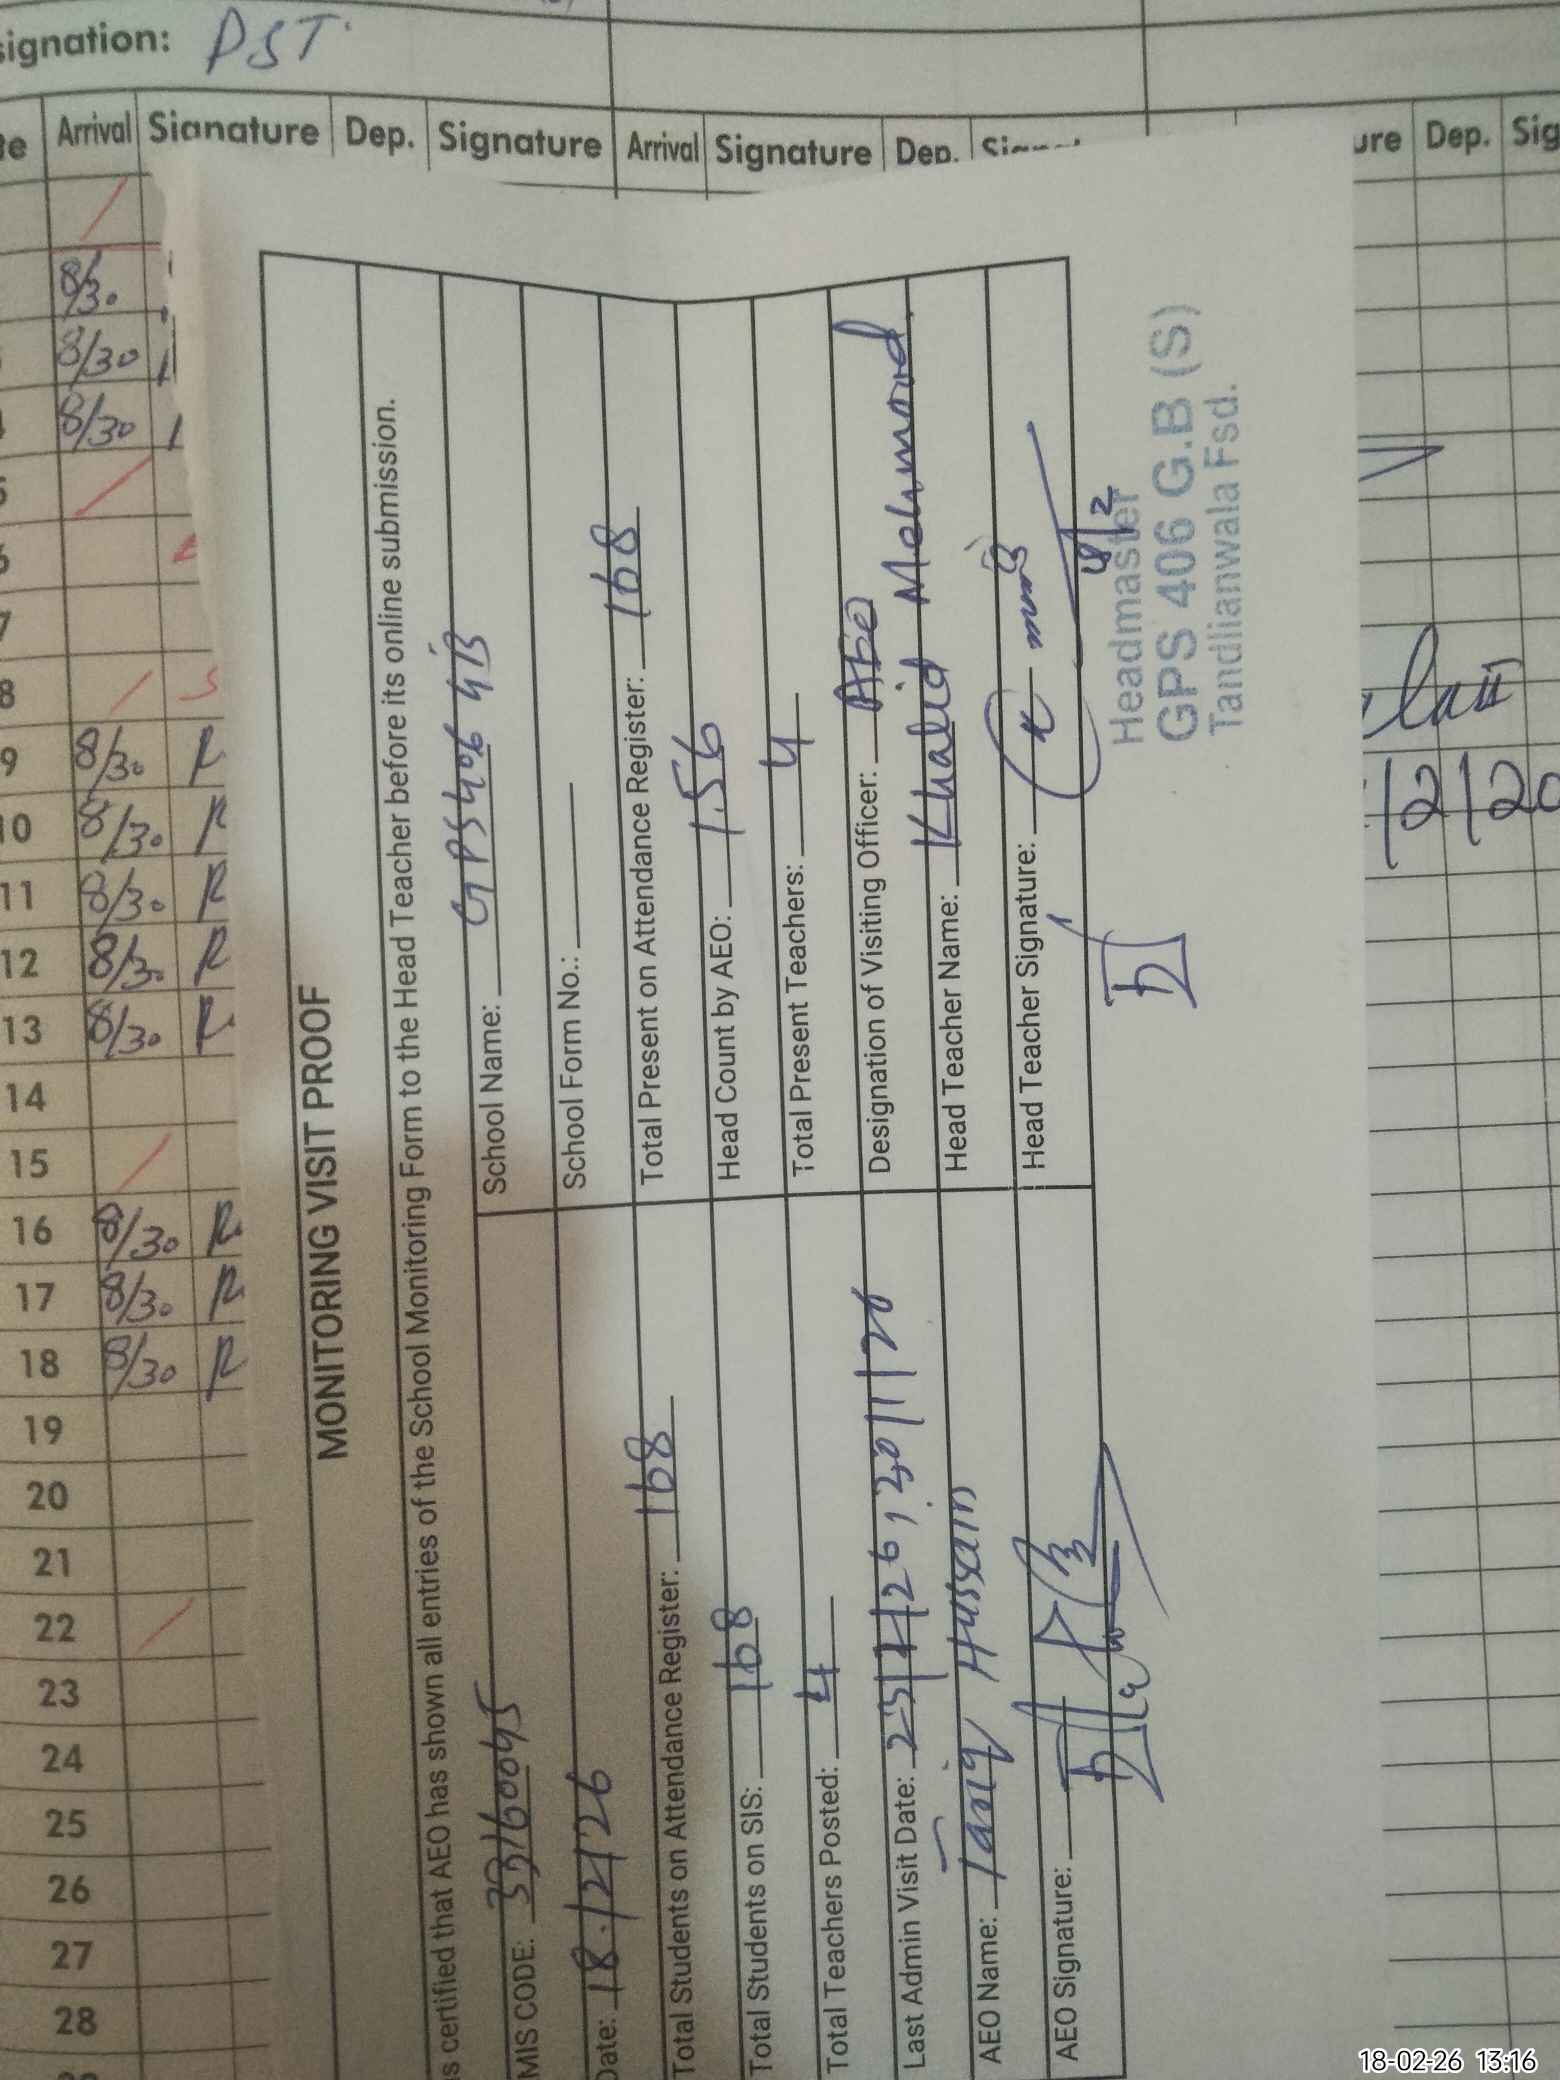 signation: PST
Arrival Signature Dep. Signature Arrival Signature Dep. ure Dep. Sig
8/30
8/30
8/30
7
8
9 8/30 R
10 8/30 R
11 8/30 R
12 8/30 R
13 8/30 R
14
15
16 8/30 R
17 8/30 R
18 8/30 R
19
20
21
22
23
24
25
26
27
28
MONITORING VISIT PROOF
s certified that AEO has shown all entries of the School Monitoring Form to the Head Teacher before its online submission.
MIS CODE: 33160045
School Name: GPS 406 GB
Date: 18/2/26
School Form No.:
Total Students on Attendance Register: 168
Total Present on Attendance Register: 168
Total Students on SIS: 168
Head Count by AEO: 156
Total Teachers Posted: 4
Total Present Teachers: 4
Last Admin Visit Date: 30/1/26
Designation of Visiting Officer: AEO
AEO Name: Tariq Hussain
Head Teacher Name: Khalid Mehmood
AEO Signature:
Head Teacher Signature:
18/2
Headmaster
GPS 406 G.B (S)
Tandlianwala Fsd.
/2/20
18-02-26 13:16